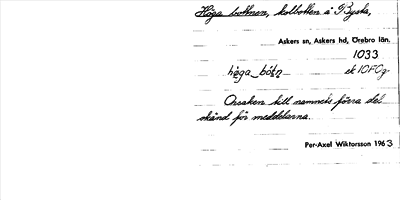 Höga bottnen, kolbotten å Byska,
Askers sn, Askers hd, Örebro län.
1033
höga_bótn ek 10F0g
Orsaken till namnets förra del
okänd för meddelarna.
Per-Axel Wiktorsson 1963